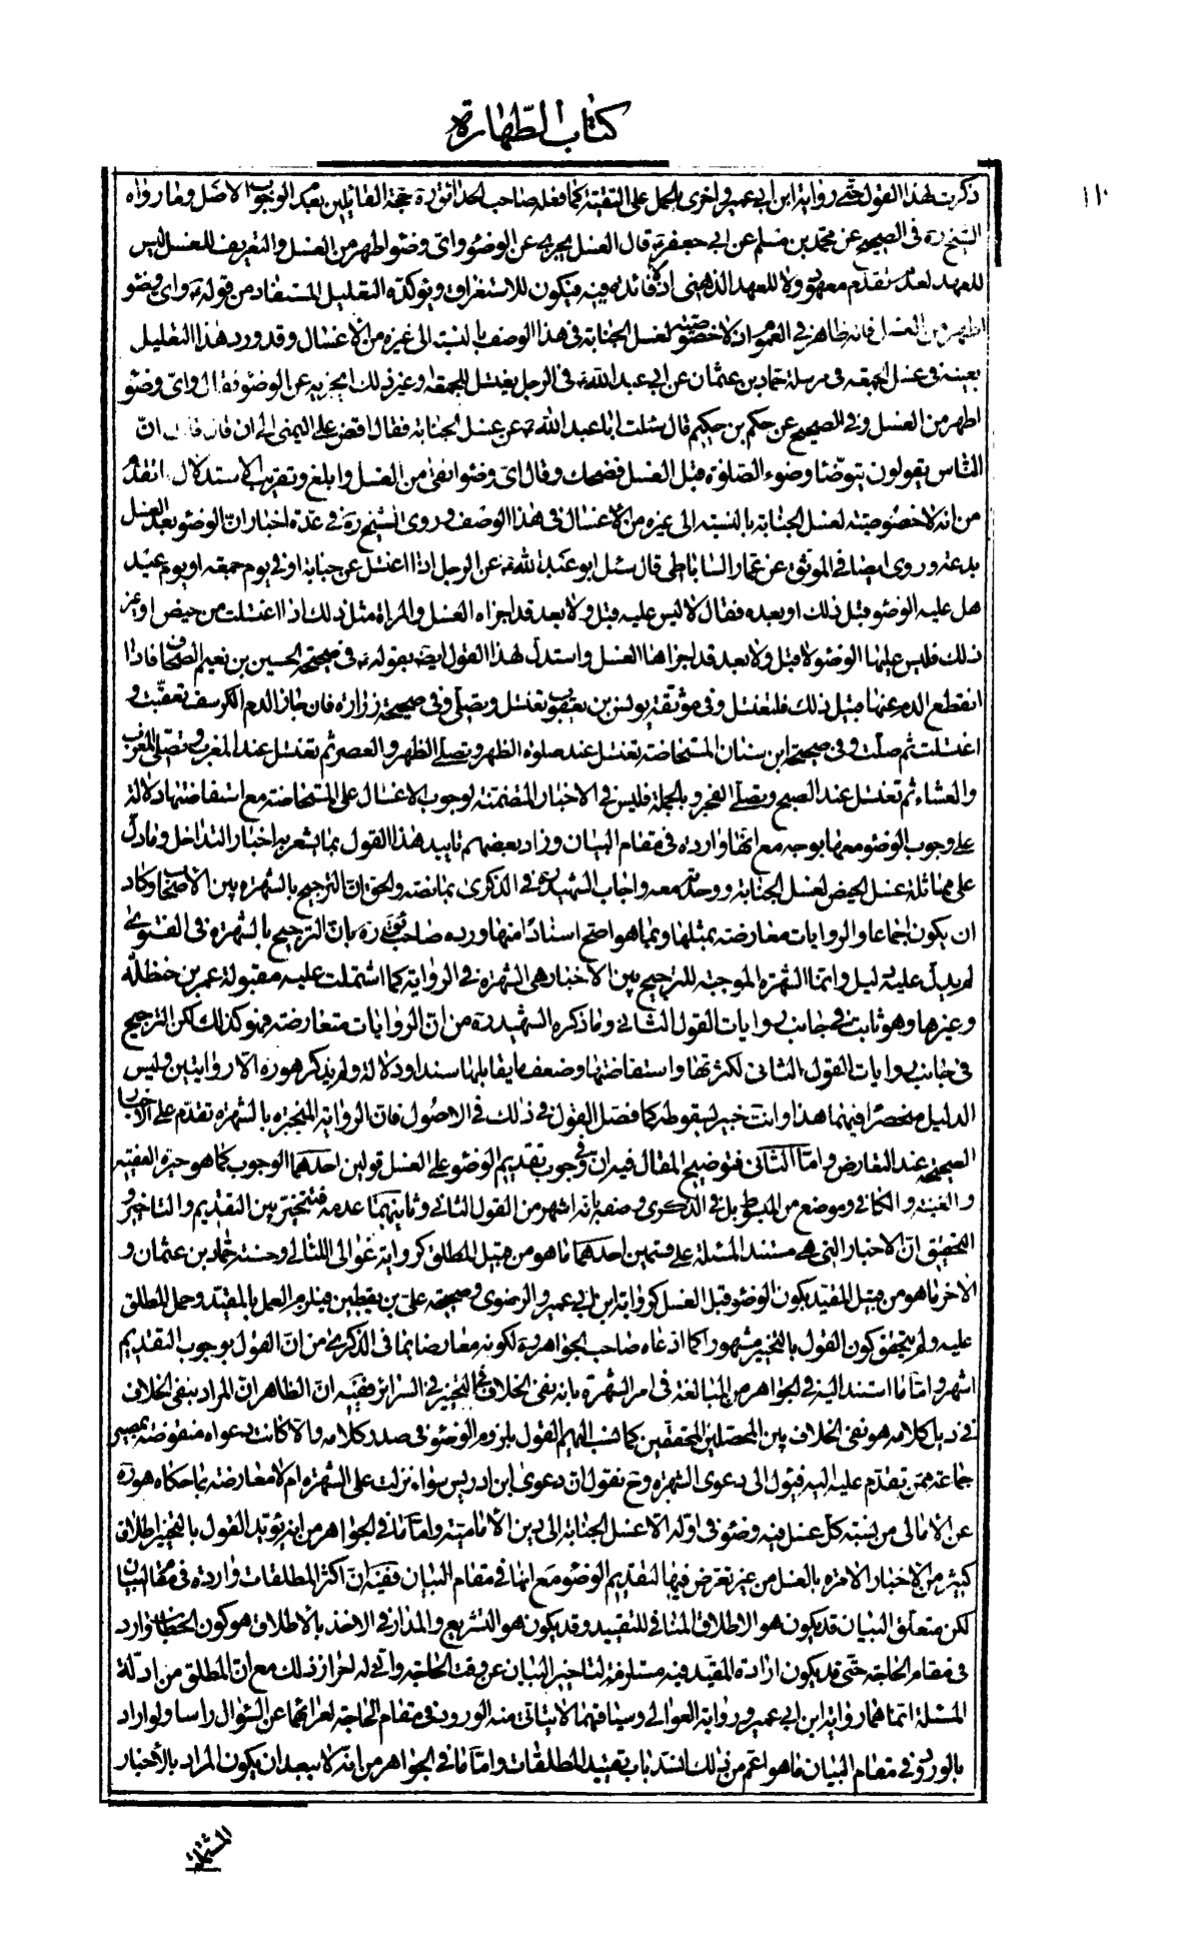 كتاب الطهارة
١١٠
ذكرت لهذا القول حتى رواية ابن ابي عمير في اخرى بالحمل على التقية كما فعله صاحب الحدائق ره حجة القائلين بعدم الوجوب الاصل وما رواه
الشيخ ره فى الصحيح عن محمد بن مسلم عن ابي جعفر ع قال الغسل يجزي عن الوضوء واى وضوء اطهر من الغسل والتعريف للغسل ليس
للعهد لعدم تقدم معهود ولا للعهد الذهني اذ لا فائدة فيه فيكون للاستغراق ويؤكده التعليل المستفاد من قوله ع واى وضوء
اطهر من الغسل فانه ظاهر في العموم وان لا خصوصية لغسل الجنابة فى هذا الوصف بالنسبة الى غيره من الاغسال وقد ورد هذا التعليل
بعينه فى غسل الجمعة فى مرسلة حماد بن عثمان عن ابي عبد الله ع فى الرجل يغتسل للجمعة وغير ذلك ايجزيه عن الوضوء فقال واى وضوء
اطهر من الغسل وفي الصحيح عن حكم بن حكيم قال سئلت ابا عبد الله ع عن غسل الجنابة فقال افض على اليمنى الى ان قال قلت انّ
الناس يقولون يتوضأ وضوء الصلوة قبل الغسل فضحك وقال اى وضوء انقى من الغسل وابلغ وتقريب الاستدلال ما تقدم
من انه لا خصوصية لغسل الجنابة بالنسبة الى غيره من الاغسال فى هذا الوصف وروى الشيخ ره فى عدة اخبار انّ الوضوء بعد الغسل
بدعة وروى ايضا في الموثق عن عمار الساباطى قال سئل ابو عبد الله ع عن الرجل اذا اغتسل عن جنابة او في يوم جمعة او يوم عيد
هل عليه الوضوء قبل ذلك او بعده فقال لا ليس عليه قبل ولا بعد قد اجزاه الغسل والمراة مثل ذلك اذا اغتسلت من حيض او غير
ذلك فليس عليها الوضوء لا قبل ولا بعد قد اجزاها الغسل واستدل لهذا القول ايضا بقوله ع فى صحيحة الحسين بن نعيم الصحاف فاذا
انقطع الدم عنها قبل ذلك فلتغتسل وفى موثقة يونس بن يعقوب تغتسل وتصلى وفى صحيحة زرارة فان جاز الدم الكرسف تعصبت و
اغتسلت ثم صلت وفى صحيحة ابن سنان المستحاضة تغتسل عند صلوة الظهر وتصلى الظهر والعصر ثم تغتسل عند المغرب وتصلى المغرب
والعشاء ثم تغتسل عند الصبح وتصلى الفجر وبالجملة فليس في الاخبار المتضمنة لوجوب الاغسال على المستحاضة مع استفاضتها دلالة
على وجوب الوضوء معها بوجه مع انها واردة فى مقام البيان وزاد بعضهم تاييد هذا القول بما يشعر به اخبار التداخل وما دلّ
على مماثلة غسل الحيض لغسل الجنابة ووحدته معه واجاب الشهيد ره فى الذكرى بما نصه والحق ان الترجيح بالشهرة بين الاصحاب وكاد
ان يكون اجماعا والروايات معارضة بمثلها وبما هو اصح اسنادًا منها ورده صاحب ئق ره بانّ الترجيح بالشهرة فى الفتوى
لم يدل عليه دليل وانما الشهرة الموجبة للترجيح بين الاخبار هى الشهرة في الرواية كما اشتملت عليه مقبولة عمر بن حنظلة
وغيرها وهو ثابت في جانب روايات القول الثانى وما ذكره الشهيد ره من ان الروايات متعارضة فهو كذلك لكن الترجيح
فى جانب روايات القول الثانى لكثرتها واستفاضتها وضعف ما يقابلها سندا ودلالة ولم يذكر هو ره الا روايتين وليس
الدليل منحصرا فيهما هذا وانت خبير بسقوطه كما فصل القول في ذلك فى الاصول فان الرواية المنجبرة بالشهرة تقدم على الاخبار
الصحيحة عند التعارض وامّا الثانى فتوضيح المقال فيه ان في وجوب تقديم الوضوء على الغسل قولين احدهما الوجوب كما هو خيرة الفقيه
والغنية والكافى وموضع من المبسوط بل في الذكرى وصفه بانه اشهر من القول الثانى وثانيهما عدمه فتتخير بين التقديم والتاخير و
التحقيق انّ الاخبار التي هى مستند المسئلة على قسمين احدهما ما هو من قبيل المطلق كرواية غوالى اللئالى وحسنة حماد بن عثمان و
الاخر ما هو من قبيل المقيد بكون الوضوء قبل الغسل كرواية ابن ابي عمير والرضوى وصحيحة على بن يقطين فيلزم العمل بالمقيد وحمل المطلق
عليه ولم يتحقق كون القول بالتخيير مشهورا كما ادعاه صاحب الجواهر ره لكونه معارضا بما فى الذكرى من انّ القول بوجوب التقديم
اشهر وامّا ما استند اليه في الجواهر من المبالغة فى امر الشهرة بانه نفى الخلاف عن التخيير في السرائر ففيه انّ الظاهر ان المراد بنفى الخلاف
فى ذيل كلامه هو نفى الخلاف بين المحصلين المحققين كما نسب اليهم القول بلزوم الوضوء فى صدر كلامه والا كانت دعواه منقوضة بمصير
جماعة ممن تقدم عليه اليه فيئول الى دعوى الشهرة وح نقول ان دعوى ابن ادريس سواء نزلت على الشهرة ام لا معارضة بما حكاه هو ره
عن الامالى من نسبة كل غسل فيه وضوء فى اوله الا غسل الجنابة الى دين الامامية وامّا ما في الجواهر من انه يؤيد القول بالتخيير اطلاق
كثير من الاخبار الامرة بالغسل من غير تعرض فيها لتقديم الوضوء مع انها في مقام البيان ففيه انّ اكثر المطلقات واردة فى مقام البيان
لكن متعلق البيان قد يكون هو الاطلاق المنافى للتقييد وقد يكون هو التشريع والمدار في الاخذ بالاطلاق هو كون الخطاب وارد
فى مقام الحاجة حتى قد يكون ارادة المقيد فيه مستلزمة لتاخير البيان عن وقت الحاجة واني له احراز ذلك مع انّ المطلق من ادلة
المسئلة انما هما رواية ابن ابي عمير ورواية العوالى وسياقهما لا يتاتى منه الورود فى مقام الحاجة لعرائهما عن السؤال راسا ولو اراد
بالورود في مقام البيان ما هو اعم من ذلك انسد باب تقييد المطلقات وامّا ما في الجواهر من انّه لا يبعد ان يكون المراد بالأخبار
المشتملة